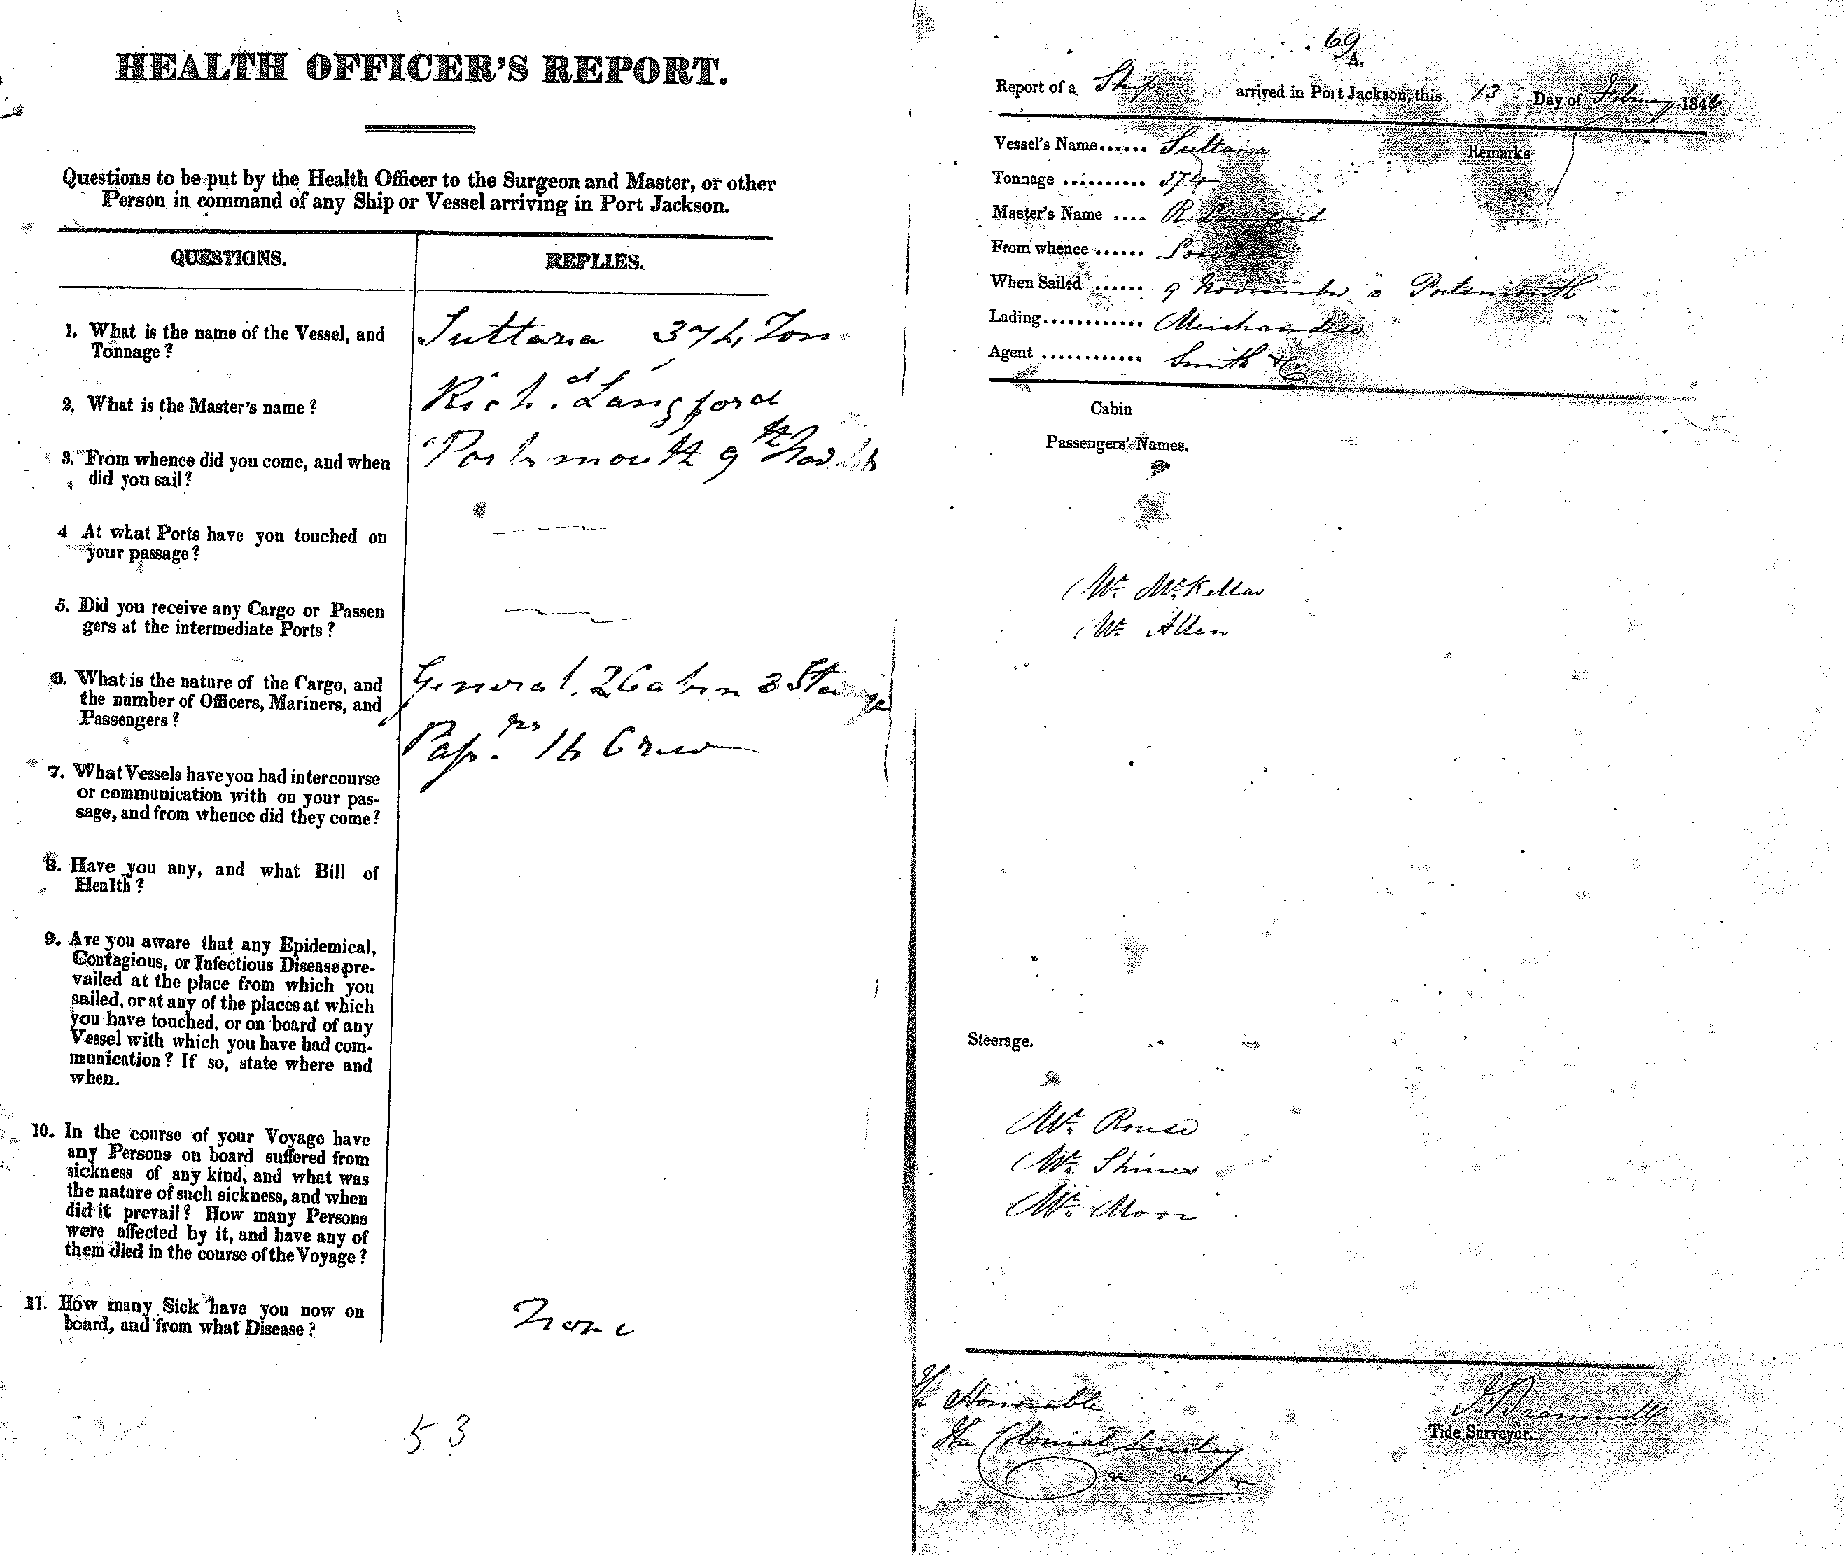 HEALTH OFFICER'S REPORT.
Questions to be put by the Health Officer to the Surgeon and Master, or other
Person in command of any Ship or Vessel arriving in Port Jackson.
QUESTIONS.
REPLIES.
1. What is the name of the Vessel, and
Tonnage?
Sultana 374 Ton
2. What is the Master's name?
Richd. Langford
3. From whence did you come, and when
did you sail?
Portsmouth 9th Novbr
4 At what Ports have you touched on
your passage?
5. Did you receive any Cargo or Passen
gers at the intermediate Ports?
6. What is the nature of the Cargo, and
the number of Officers, Mariners, and
Passengers?
General. 2 Cabin 3 Steerage
Passrs. 16 Crew
7. What Vessels have you had intercourse
or communication with on your pas-
sage, and from whence did they come?
8. Have you any, and what Bill of
Health?
9. Are you aware that any Epidemical,
Contagious, or Infectious Disease pre-
vailed at the place from which you
sailed, or at any of the places at which
you have touched, or on board of any
Vessel with which you have had com-
munication? If so, state where and
when.
10. In the course of your Voyage have
any Persons on board suffered from
sickness of any kind, and what was
the nature of such sickness, and when
did it prevail? How many Persons
were affected by it, and have any of
them died in the course of the Voyage?
11. How many Sick have you now on
board, and from what Disease?
None
53
69
Report of a Ship arrived in Port Jackson, this 13 Day of February 1846
Vessel's Name...... Sultana
Remarks
Tonnage .......... 374
Master's Name .... R
From whence ......
When Sailed ...... 9 November Portsmouth
Lading............ Merchandise
Agent ............ Smith & Co
Cabin
Passengers' Names.
Mr. McKellar
Mr. Allen
Steerage.
Mr. Rouse
Mr. Shines
Mr. Moon
The Honorable
The Colonial Secretary
Tide Surveyor.